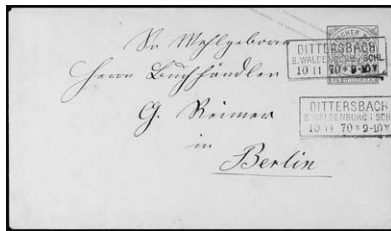 Sr Wohlgeboren
Herrn Buchhändler
G. Reimer
in
Berlin
DITTERSBACH
B. WALDENBURG I SCHL
10 11 70 * 9-10 V
DITTERSBACH
B. WALDENBURG I SCHL
10 11 70 * 9-10 V